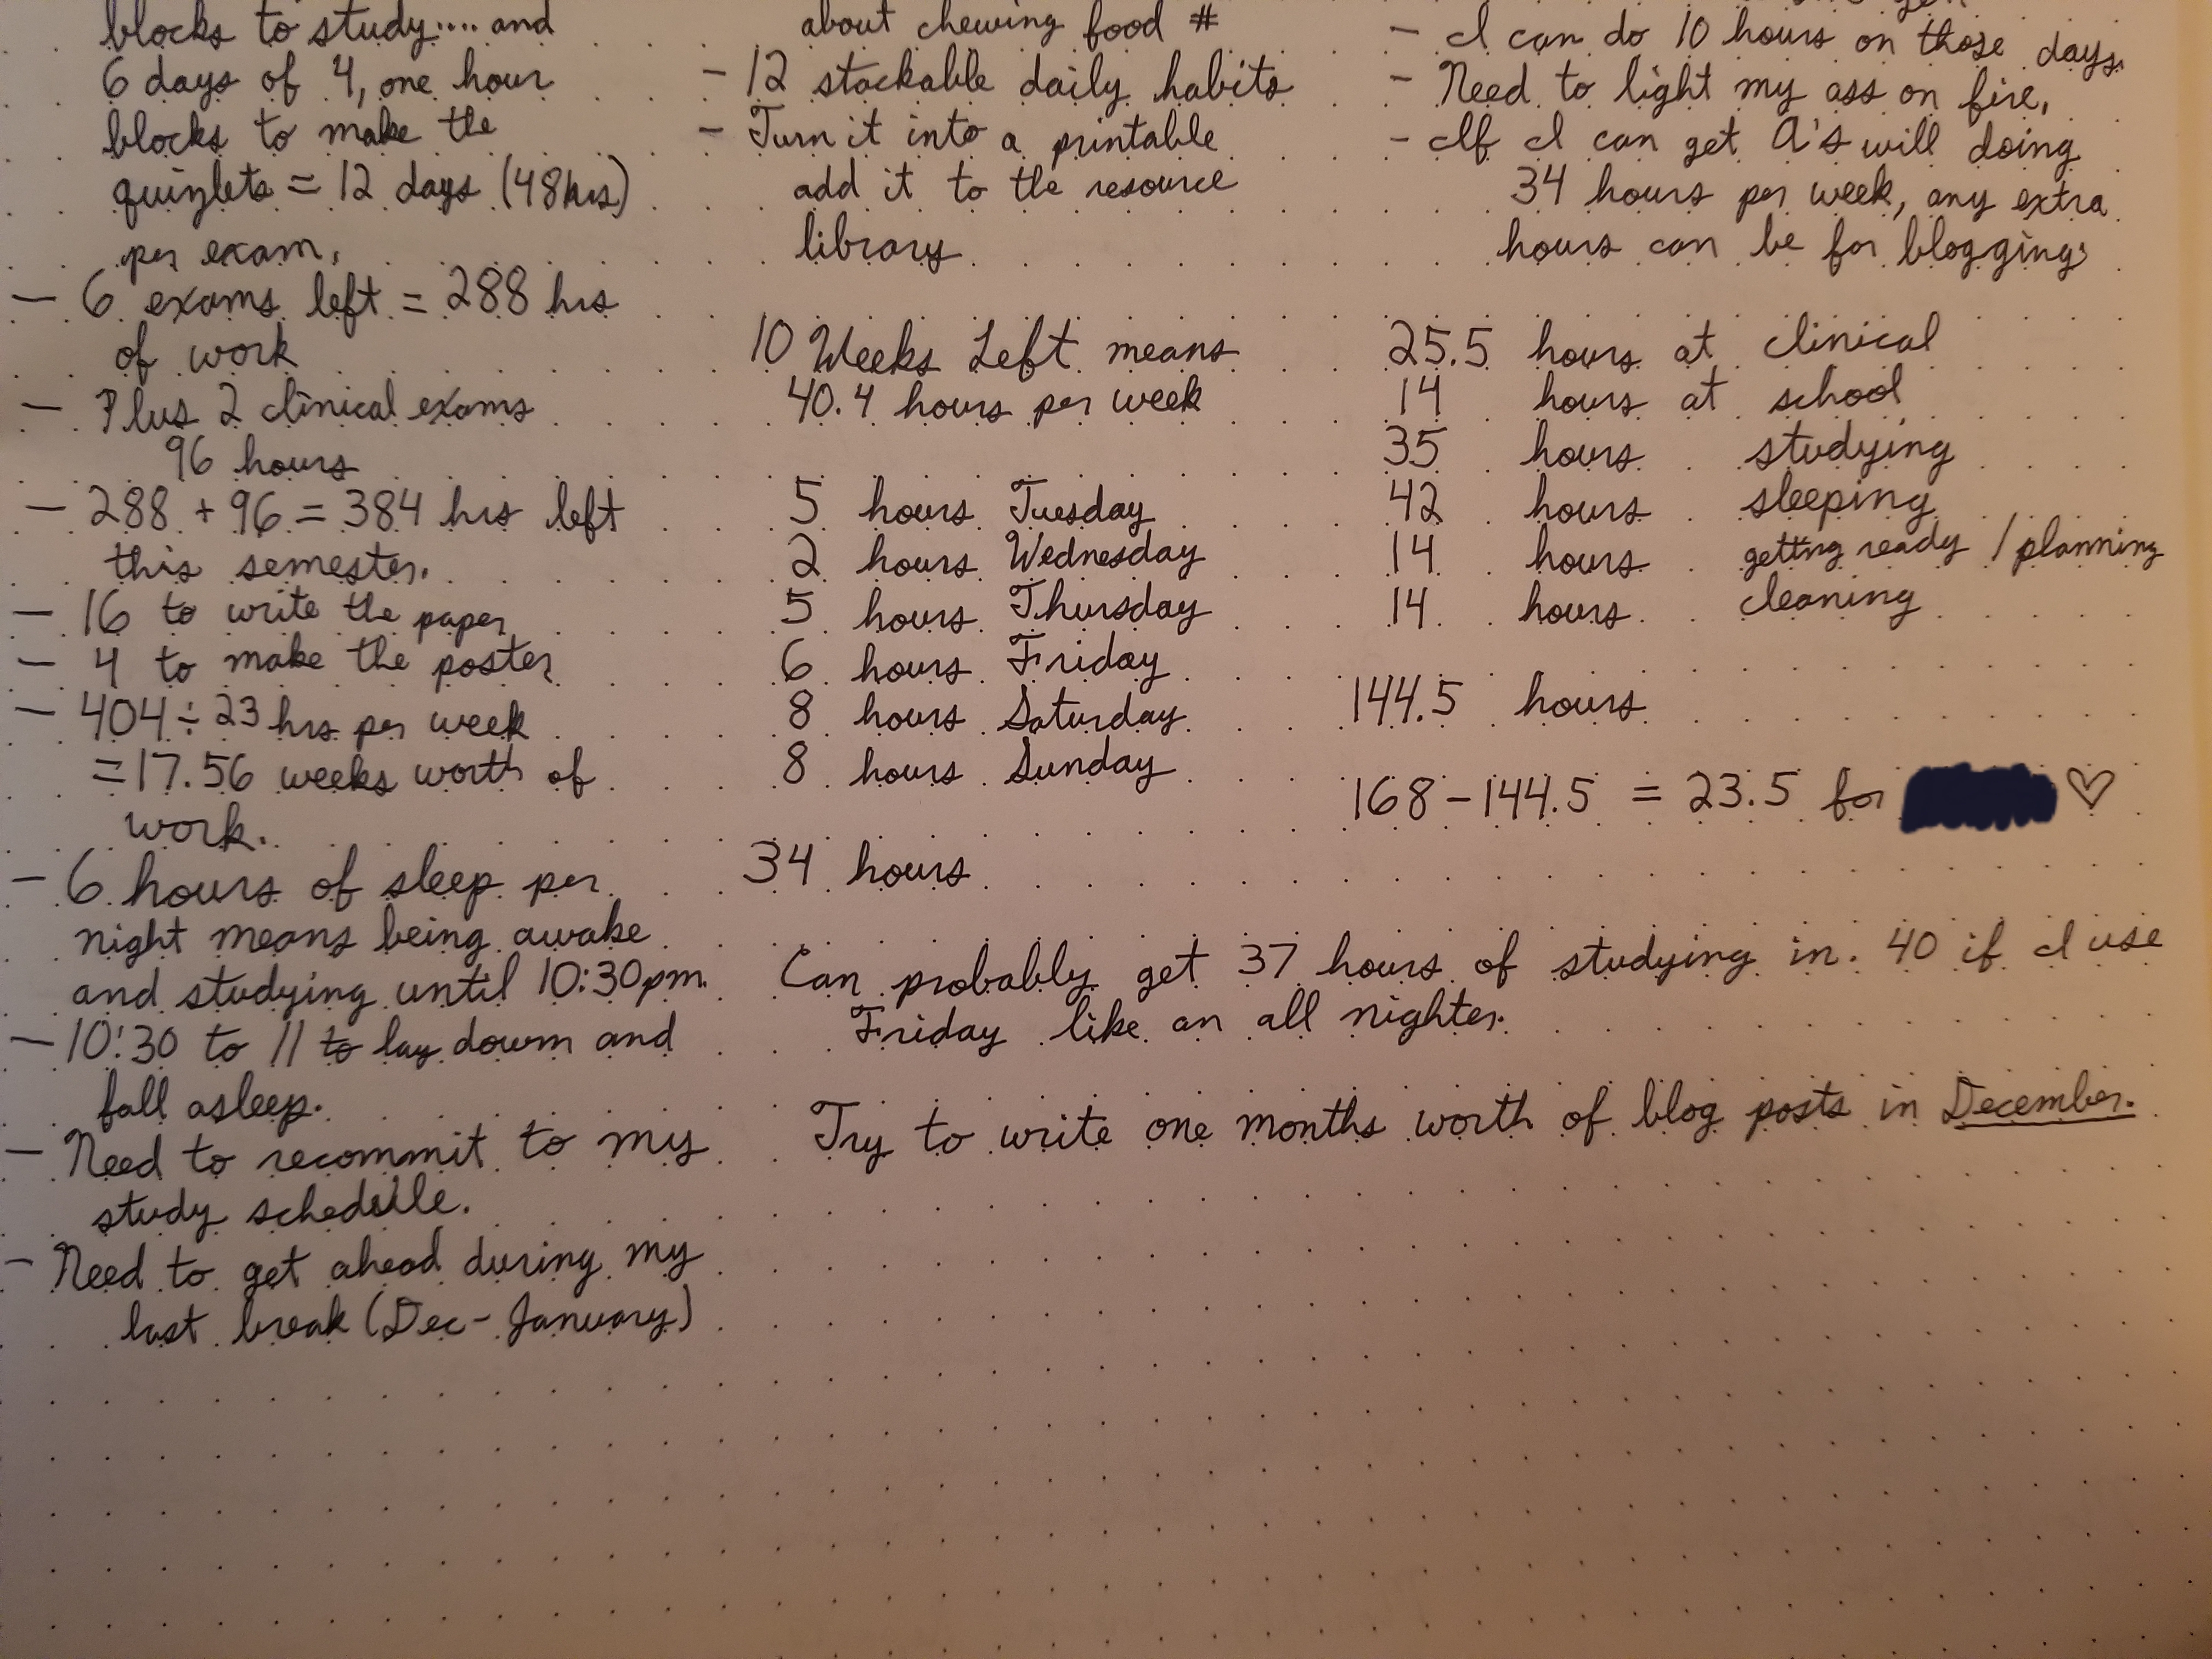 blocks to study.... and
6 days of 4, one hour
blocks to make the
quizlets = 12 days (48hrs)
per exam.
- 6 exams left = 288 hrs
of work
- Plus 2 clinical exams
96 hours
- 288 + 96 = 384 hrs left
this semester.
- 16 to write the paper
- 4 to make the poster
- 404 ÷ 23 hrs per week
= 17.56 weeks worth of
work.
- 6 hours of sleep per
night means being awake
and studying until 10:30pm.
- 10:30 to 11 to lay down and
fall asleep.
- Need to recommit to my
study schedule.
- Need to get ahead during my
last break (Dec - January)
about chewing food #
- 12 stackable daily habits
- Turn it into a printable
add it to the resource
library
10 Weeks Left means
40.4 hours per week
5 hours Tuesday
2 hours Wednesday
5 hours Thursday
6 hours Friday
8 hours Saturday
8 hours Sunday
34 hours
- I can do 10 hours on those days.
- Need to light my ass on fire.
- If I can get A's will doing
34 hours per week, any extra
hours can be for blogging
25.5 hours at clinical
14 hours at school
35 hours studying
42 hours sleeping
14 hours getting ready / planning
14 hours cleaning
144.5 hours
168 - 144.5 = 23.5 for ♡
Can probably get 37 hours of studying in. 40 if I use
Friday like an all nighter.
Try to write one months worth of blog posts in December.